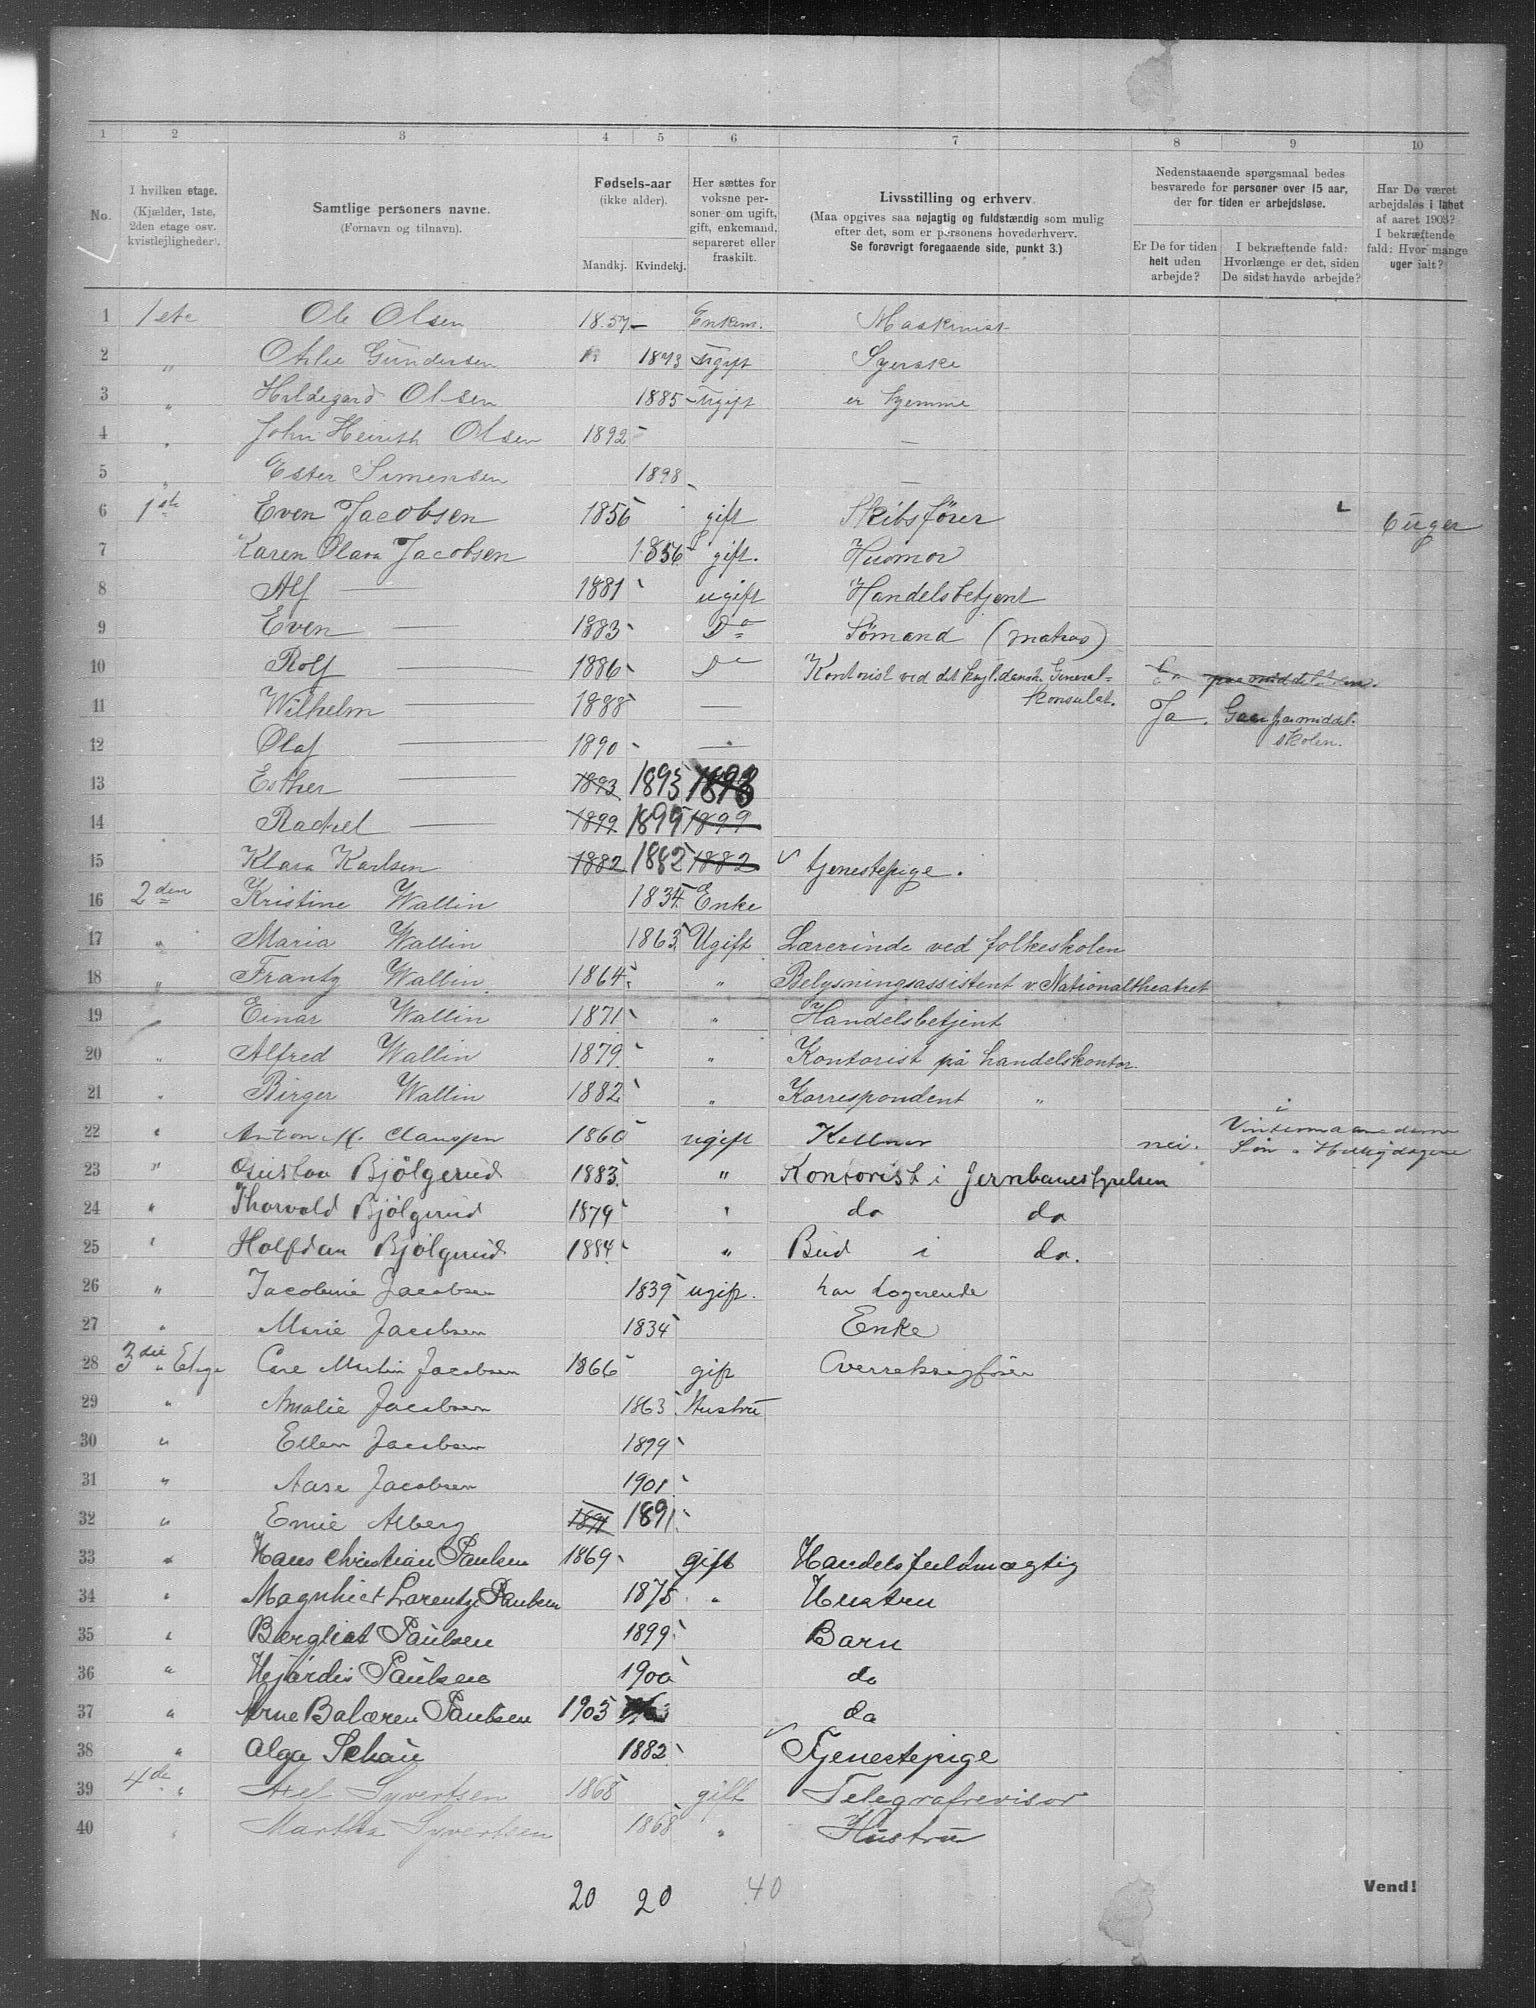 1 2 3 4 5 6 7 8 9 10
No.
I hvilken etage.
(Kjælder, 1ste,
2den etage osv.
kvistlejligheder).
Samtlige personers navne.
(Fornavn og tilnavn).
Fødsels-aar
(ikke alder).
Mandkj. Kvindekj.
Her sættes for
voksne per-
soner om ugift,
gift, enkemand,
separeret eller
fraskilt.
Livsstilling og erhverv.
(Maa opgives saa nøjagtig og fuldstændig som mulig
efter det, som er personens hovederhverv.
Se forøvrigt foregaaende side, punkt 3.)
Nedenstaaende spørgsmaal bedes
besvarede for personer over 15 aar,
der for tiden er arbejdsløse.
Er De for tiden
helt uden
arbejde?
I bekræftende fald:
Hvorlænge er det, siden
De sidst havde arbejde?
Har De været
arbejdsløs i løbet
af aaret 1903?
I bekræftende
fald: Hvor mange
uger ialt?
1 1 ete Ole Olsen 1857 Enkem. Maskinist
2 " Gundersen 1873 Ugift Syerske
3 " Hildegard Olsen 1885 Ugift er hjemme
4 " John Olsen 1892 —
5 " Ester Simensen 1898 —
6 1ste Even Jacobsen 1856 gift Skibsfører 6 uger
7 Karen Olava Jacobsen 1856 gift. Husmor
8 Alf — 1881 ugift Handelsbetjent
9 Even — 1883 Do Sømand (matros)
10 Rolf — 1886 Do Kontorist ved det kgl. dansk. General=
konsulat.
11 Wilhelm — 1888 — Ja. Gaar paa middel.
skolen.
12 Olaf — 1890 —
13 Esther — 1893 1893 1893
14 Rachel — 1899 1899 1899
15 Klara Karlsen 1882 1882 1882 tjenestepige.
16 2den Kristine Wallin 1834 Enke
17 " Maria Wallin 1863 Ugift Lærerinde ved folkeskolen
18 " Frantz Wallin 1864 " Belysningsassistent v. Nationaltheatret
19 " Einar Wallin 1871 " Handelsbetjent
20 " Alfred Wallin 1879 " Kontorist på handelskontor.
21 " Birger Wallin 1882 " Korrespondent "
22 " Anton M. Claussen 1860 ugift Kellner nei. i
Vintermaanederne
Søn & Helligdagene
23 " Gustav Bjölgerud 1883 " Kontorist i Jernbanestyrelsen
24 " Thorvald Bjölgerud 1879 " do do
25 " Halfdan Bjölgerud 1884 " Bud i do.
26 " Jacobine Jacobsen 1839 ugift. har logerende
27 " Marie Jacobsen 1834 Enke
28 3die " Etage Carl Martin Jacobsen 1866 gift Overretssagfører
29 " Amalie Jacobsen 1863 Hustru
30 " Ellen Jacobsen 1899
31 " Aase Jacobsen 1901
32 " Emie Alberg 1891 1891
33 " Hans Christian Paulsen 1869 gift Handelsfuldmægtig
34 " Magnhild Lorentze Paulsen 1875 " Hustru
35 " Bergliot Paulsen 1899 Barn
36 " Hjördis Paulsen 1900 do
37 " Arne Balæren Paulsen 1903 do
38 " Alga Schau 1882 Tjenestepige
39 4de " Axel Syvertsen 1868 gift Telegrafrevisor
40 " Martha Syvertsen 1868 " Hustru
20 20 40
Vend!